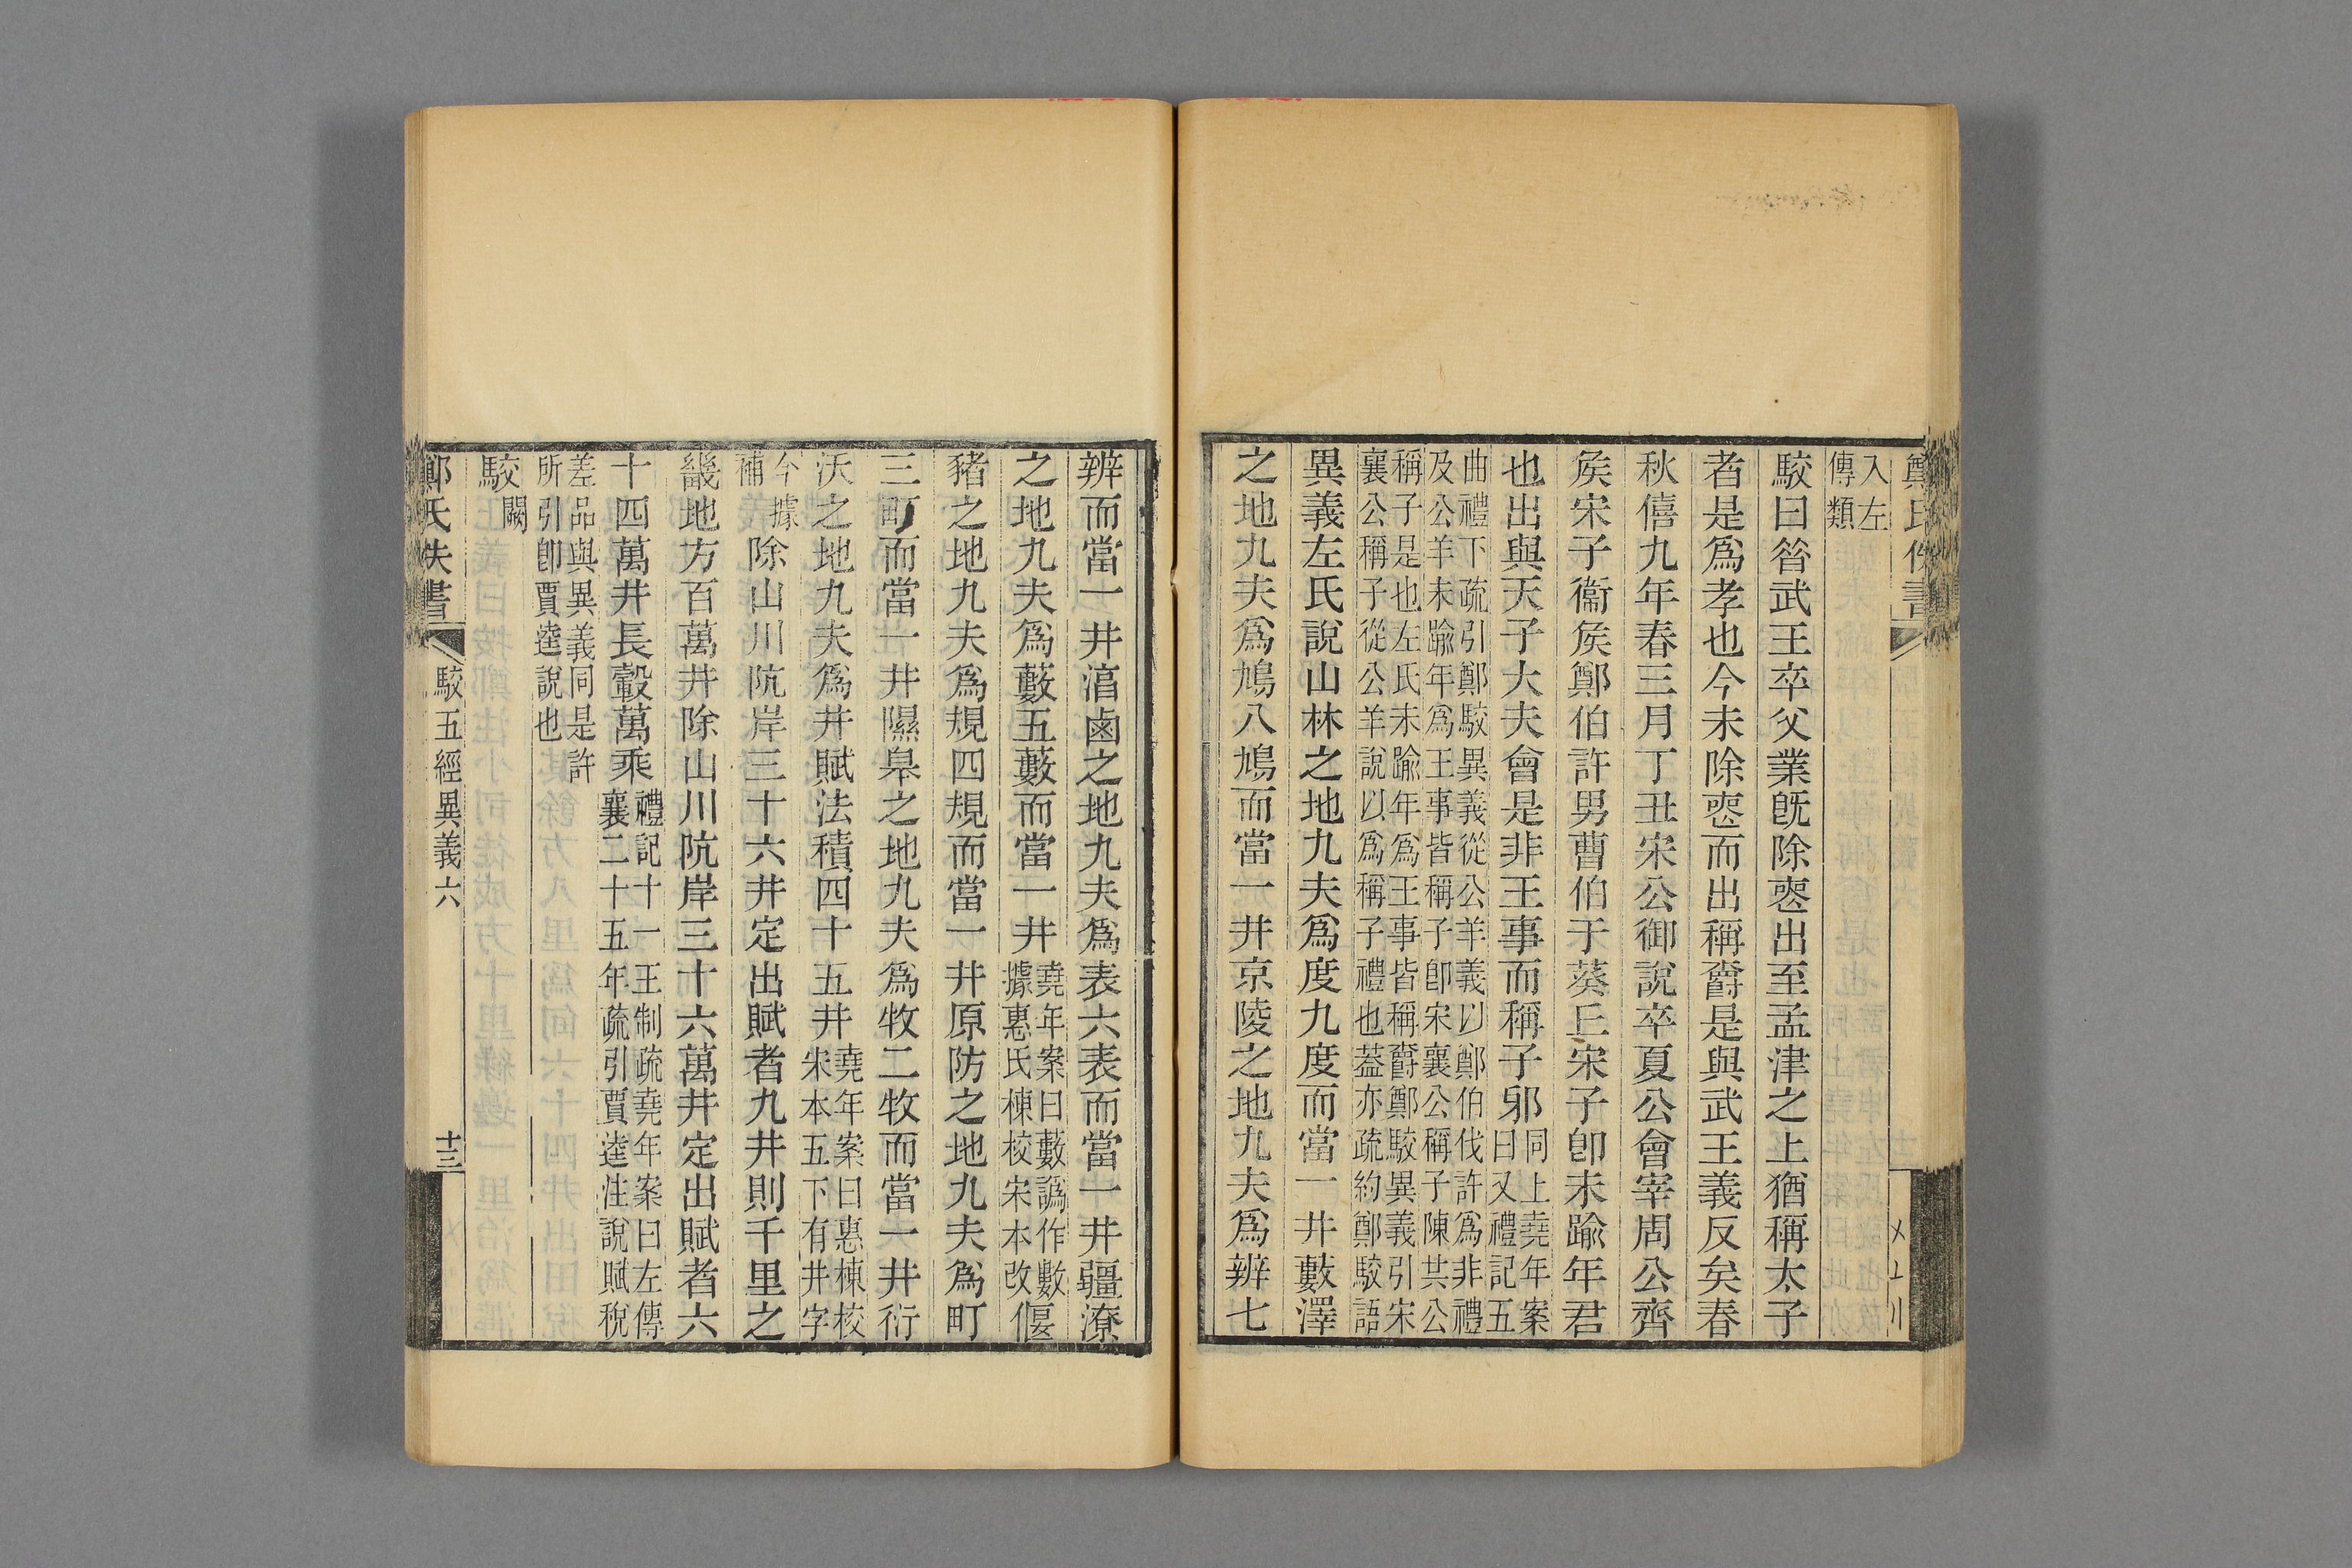 鄭氏佚書
入左
傳類
駮曰昝武王卒父業旣除喪出至孟津之上猶稱太子
者是爲孝也今未除喪而出稱爵是與武王義反矣春
秋僖九年春三月丁丑宋公御說卒夏公會宰周公齊
矦宋子衞矦鄭伯許男曹伯于葵丘宋子卽未踰年君
也出與天子大夫會是非王事而稱子邪
同上堯年案
曰又禮記五
曲禮下疏引鄭駮異義從公羊義以鄭伯伐許爲非禮
及公羊未踰年爲王事皆稱子卽宋襄公稱子陳共公
稱子是也左氏未踰年爲王事皆稱爵鄭駮異義引宋
襄公稱子從公羊說以爲稱子禮也葢亦疏約鄭駮語
異義左氏說山林之地九夫爲度九度而當一井藪澤
之地九夫爲鳩八鳩而當一井京陵之地九夫爲辨七
辨而當一井㵝鹵之地九夫爲表六表而當一井疆潦
之地九夫爲藪五藪而當一井
堯年案曰藪譌作數
據惠氏棟校宋本改
偃
豬之地九夫爲規四規而當一井原防之地九夫爲町
三町而當一井隰臯之地九夫爲牧二牧而當一井衍
沃之地九夫爲井賦法積四十五井
堯年案曰惠棟校
宋本五下有井字
今據
補
除山川阬岸三十六井定出賦者九井則千里之
畿地方百萬井除山川阬岸三十六萬井定出賦者六
十四萬井長轂萬乘
禮記十一王制疏堯年案曰左傳
襄二十五年疏引賈逵注說賦稅
差品與異義同是許
所引卽賈逵說也
駮闕
鄭氏佚書
駮五經異義六
十三